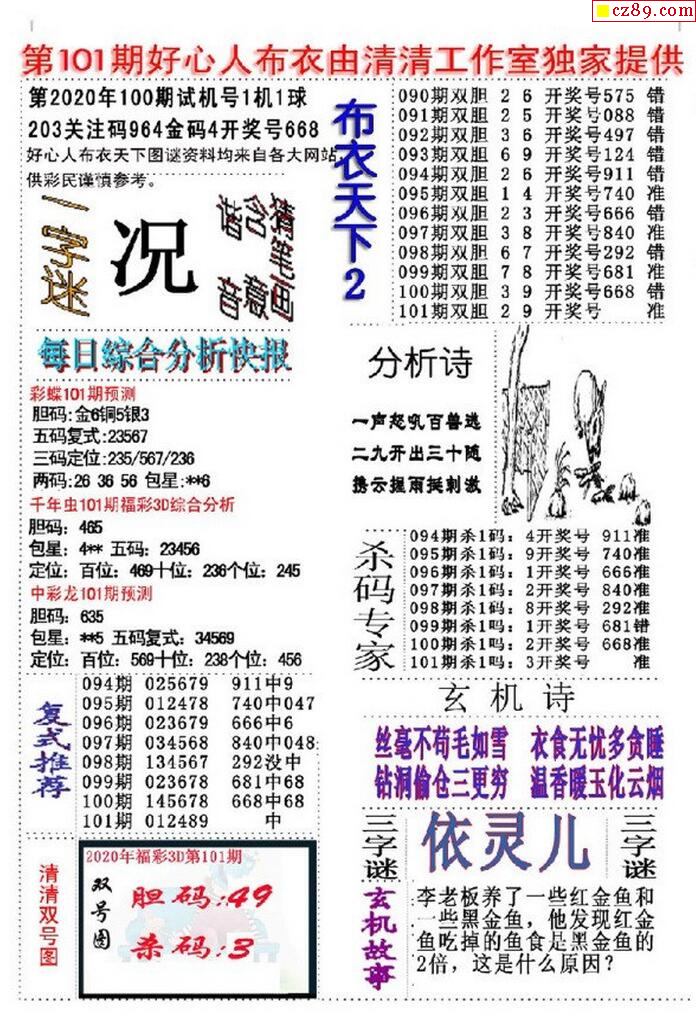 cz89.com
第101期好心人布衣由清清工作室独家提供
第2020年100期试机号1机1球
203关注码964金码4开奖号668
好心人布衣天下图谜资料均来自各大网站
供彩民谨慎参考。
一字迷
况
谐音
含意
猜笔画
布衣天下2
090期双胆 2 6 开奖号575 错
091期双胆 2 5 开奖号088 错
092期双胆 3 6 开奖号497 错
093期双胆 6 9 开奖号124 错
094期双胆 2 6 开奖号911 错
095期双胆 1 4 开奖号740 准
096期双胆 2 3 开奖号666 错
097期双胆 3 8 开奖号840 准
098期双胆 6 7 开奖号292 错
099期双胆 7 8 开奖号681 准
100期双胆 3 9 开奖号668 错
101期双胆 2 9 开奖号 准
每日综合分析快报
彩蝶101期预测
胆码:金6铜5银3
五码复式:23567
三码定位:235/567/236
两码:26 36 56 包星:**6
千年虫101期福彩3D综合分析
胆码: 465
包星: 4** 五码: 23456
定位: 百位: 469十位: 236个位: 245
中彩龙101期预测
胆码: 635
包星: **5 五码复式: 34569
定位: 百位: 569十位: 238个位: 456
分析诗
一声怒吼百兽逃
二九开出三十随
携云握雨挺刺激
杀码专家
094期杀1码: 4开奖号 911准
095期杀1码: 9开奖号 740准
096期杀1码: 1开奖号 666准
097期杀1码: 2开奖号 840准
098期杀1码: 8开奖号 292准
099期杀1吗: 1开奖号 681错
100期杀1吗: 2开奖号 668准
101期杀1吗: 3开奖号 准
复式推荐
094期 025679 911中9
095期 012478 740中047
096期 023679 666中6
097期 034568 840中048
098期 134567 292没中
099期 023678 681中68
100期 145678 668中68
101期 012489 中
玄机诗
丝毫不苟毛如雪 衣食无忧多贪睡
钻洞偷仓三更穷 温香暖玉化云烟
三字谜
依灵儿
三字谜
清清双号图
2020年福彩3D第101期
双号图
胆码:49
杀码:3
玄机故事
李老板养了一些红金鱼和
一些黑金鱼，他发现红金
鱼吃掉的鱼食是黑金鱼的
2倍，这是什么原因？